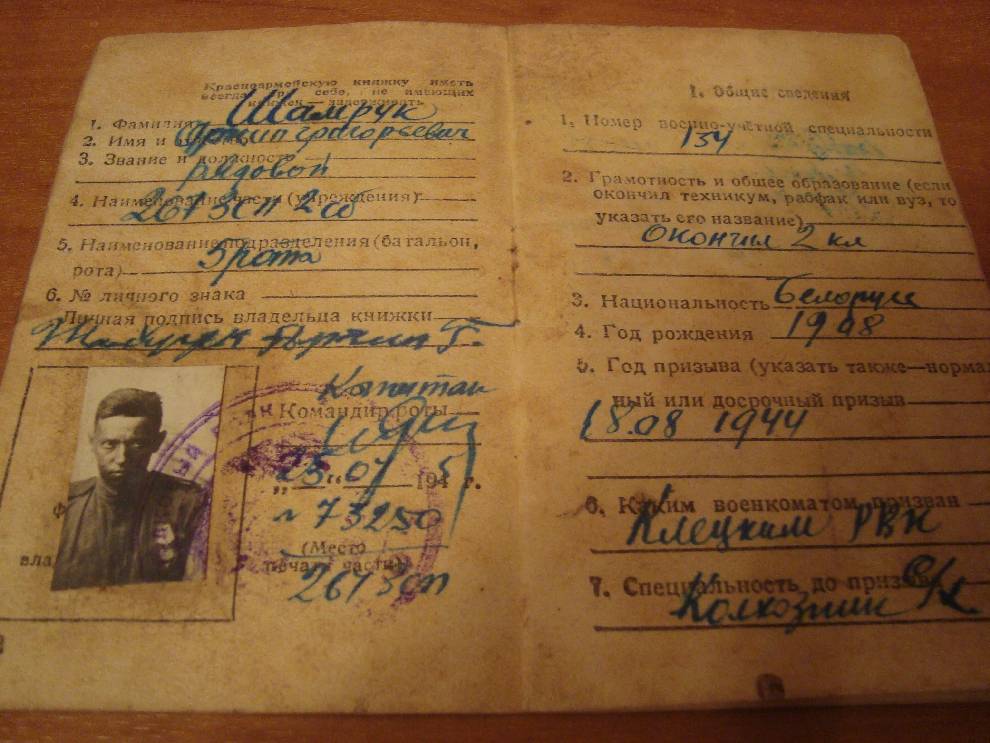 Красноармейскую книжку иметь
всегда при себе, не имеющих
книжек — задерживать
1. Фамилия Шамрук
2. Имя и Григорьевич
3. Звание и должность
рядовой
4. Наименование части (учреждения)
267 зсп 2 сб
5. Наименование подразделения (батальон,
рота) 5 рота
6. № личного знака
Личная подпись владельца книжки
Капитан
Командир роты
„25“ 07 194 5 г.
73250
(Место
печати части)
267 зсп
вла
I. Общие сведения
1. Номер военно-учётной специальности
134
2. Грамотность и общее образование (если
окончил техникум, рабфак или вуз, то
указать его название)
окончил 2 кл
3. Национальность Белорус
4. Год рождения 1908
5. Год призыва (указать также—нормаль
ный или досрочный призыв
18.08 1944
6. Каким военкоматом призван
Клецким РВК
7. Специальность до призыва
Колхозник с/х